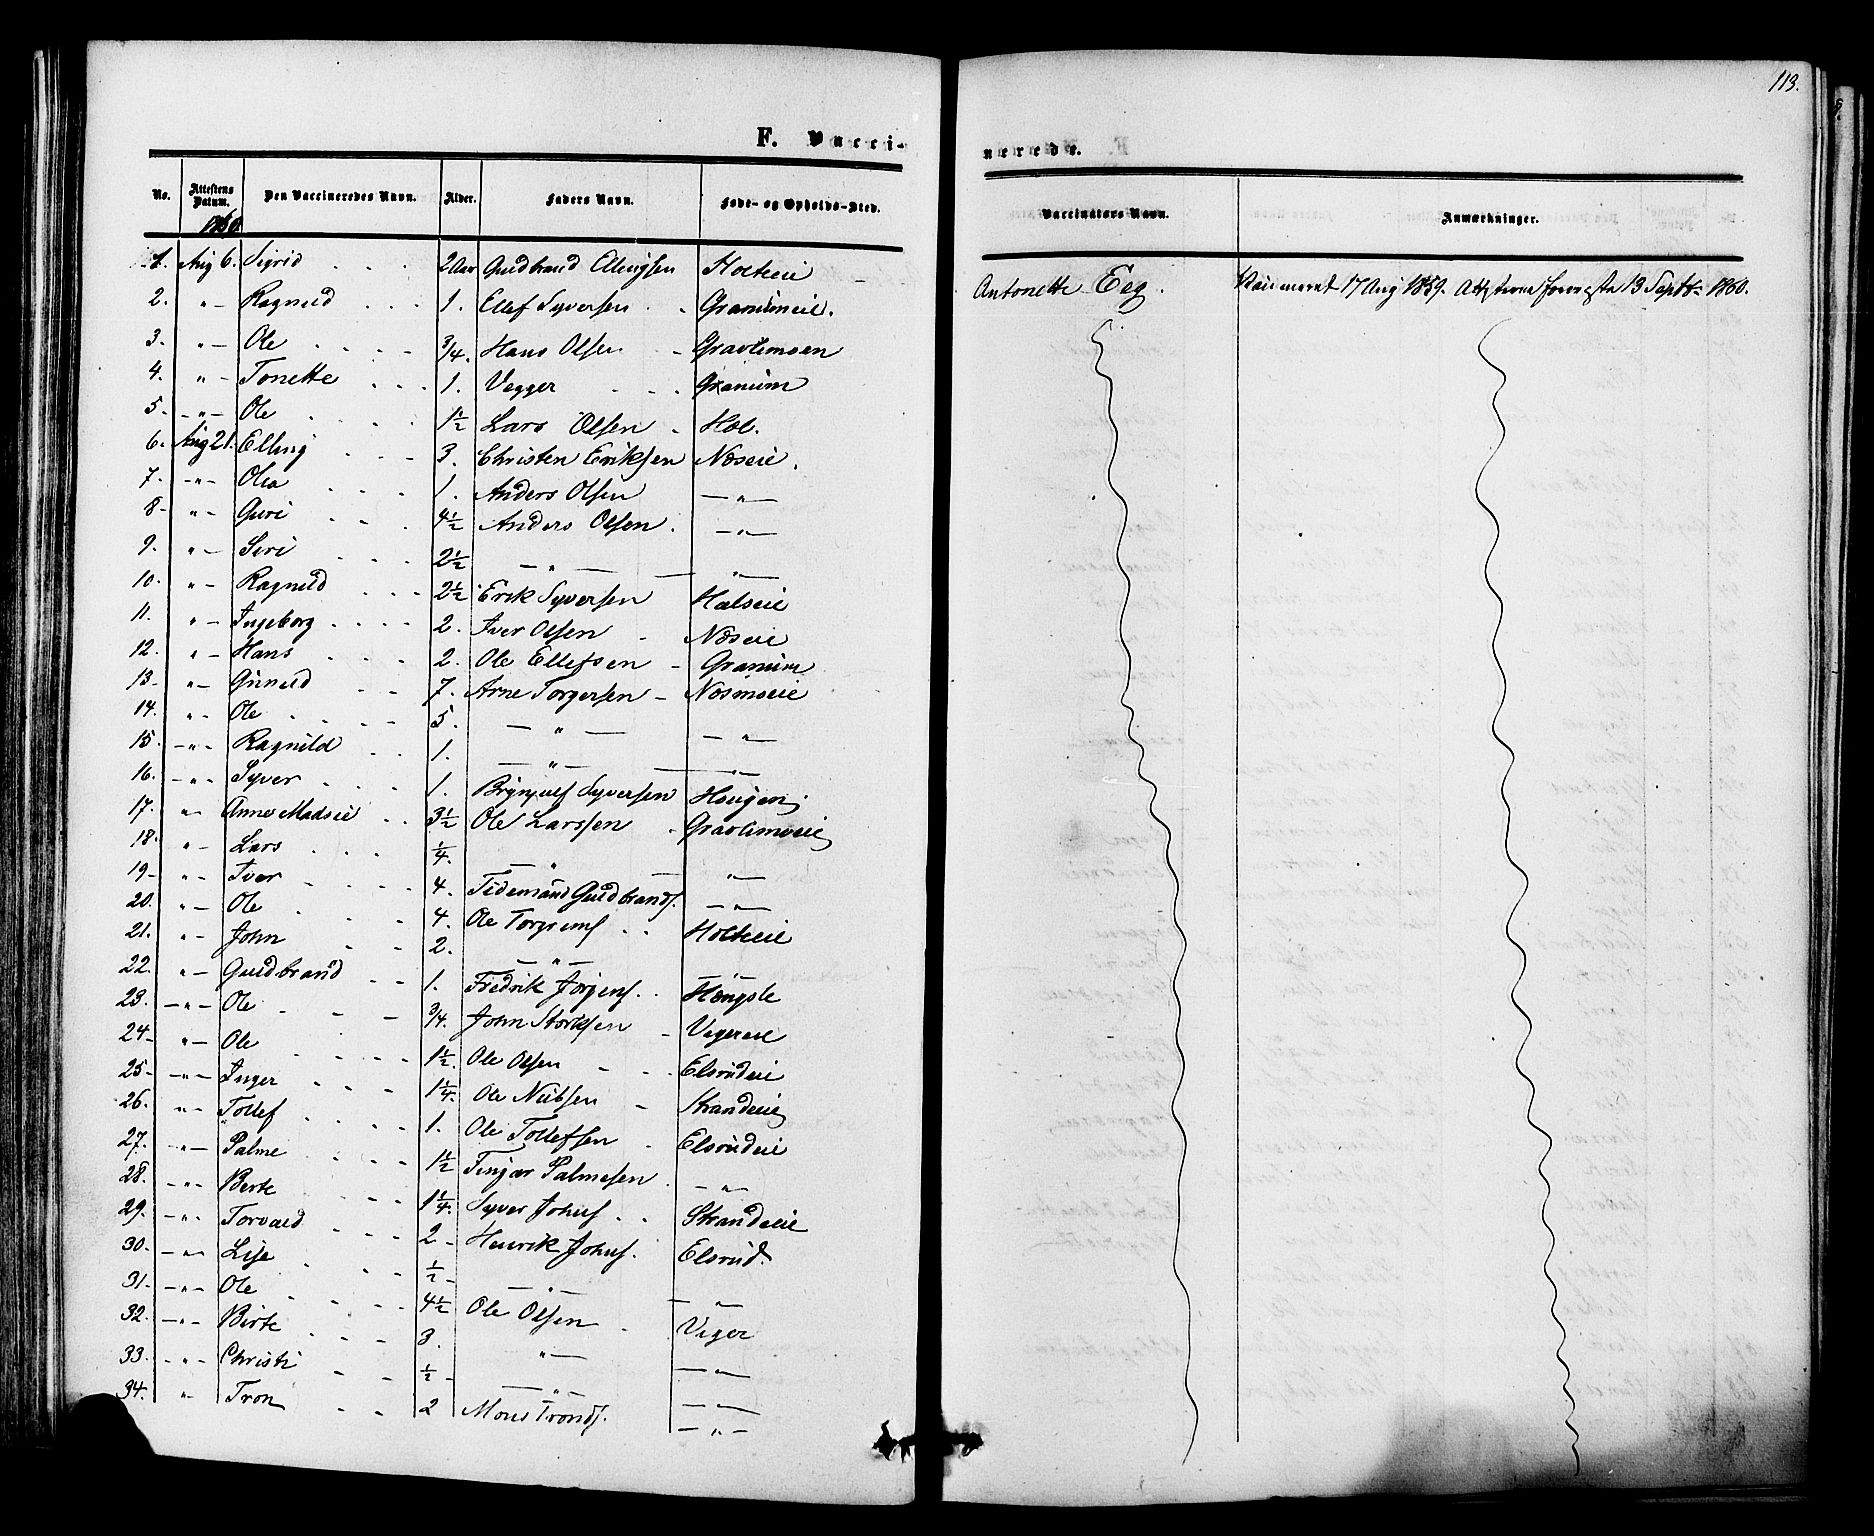 113.
F. Vacci-
nerede.
No. Attestens Datum. Den Vaccineredes Navn. Alder. Faders Navn. Føde- og Opholds-Sted. Vaccinators Navn. Anmærkninger.
1860
1. Aug 6. Sigrid 2 Aar Gudbrand Ellingsen Holteie Antonette Eeg. Vaccineret 17 Aug 1859. 13 Septbr 1860.
2. " Ragnild 1. Ellef Syversen
3. " Ole 3/4. Hans Olsen Gravlimoen
4. " Tonette 1. Vegger Granum
5. " Ole 1½ Lars Olsen Hol.
6. Aug 21. Elling 3. Christen Eriksen Næseie.
7. " Olia 1. Anders Olsen "
8 " Guri 4½ Anders Olsen. "
9. " Siri 2½ " "
10. " Ragnild 2½ Erik Syversen Hølseie
11. " Ingeborg 2. Iver Olsen Næseie
12. " Hans 2. Ole Ellefsen Granum
13. " Gunild 7. Arne Torgersen Næsmoeie
14. " Ole 5. " "
15. " Ragnild 1. " "
16. " Syver 1. Brynjulf Syversen Hougen
17. " Anne Madsie 3½ Ole Larssen Gravlimoeie
18. " Lars ¼. " "
19 " Iver 4. Tidemand Gudbrands. "
20. " Ole 4. Ole Torgrims. Holteie
21. " John 2. "
22. " Gudbrand 1. Fredrik Jørgens. Hængsle
23. " Ole 3/4. John Storksen Vegereie
24 " Ole 1½. Ole Olsen Elsrudeie
25 " Inger 1¼. Ole Nielsen Strandeie
26. " Tollef 1. Ole Tollefsen Elsrudeie
27. " Palme 1½ Palmesen "
28. " Berte 1¼. Syver Johns. Strandeie
29. " Torvald 2 Henrik Johns. Elsrud.
30. " Lise ½ " "
31. " Ole 4½ Ole Olsen Veger
32. " Birte 3. " "
33. " Christi ½ " "
34. " Tron 2 Mons Tronds. "